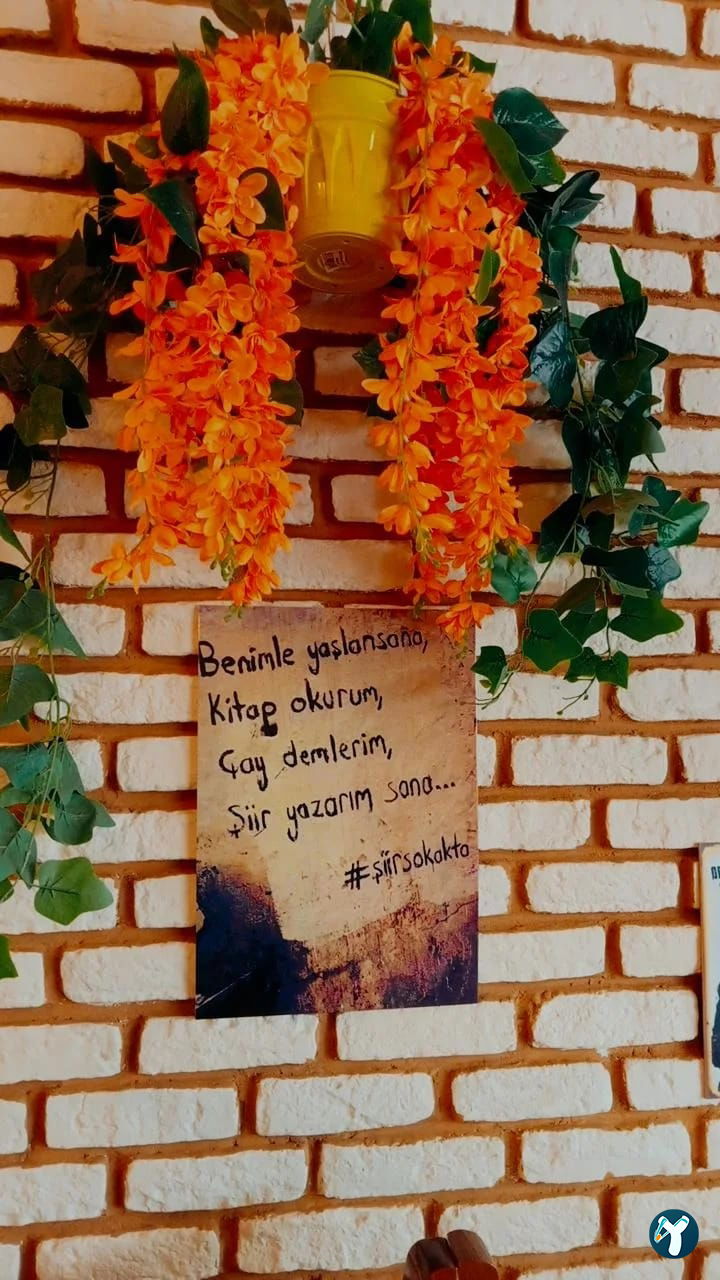 Benimle yaşlansana,
Kitap okurum,
Çay demlerim,
Şiir yazarım sana...
#şiirsokakta